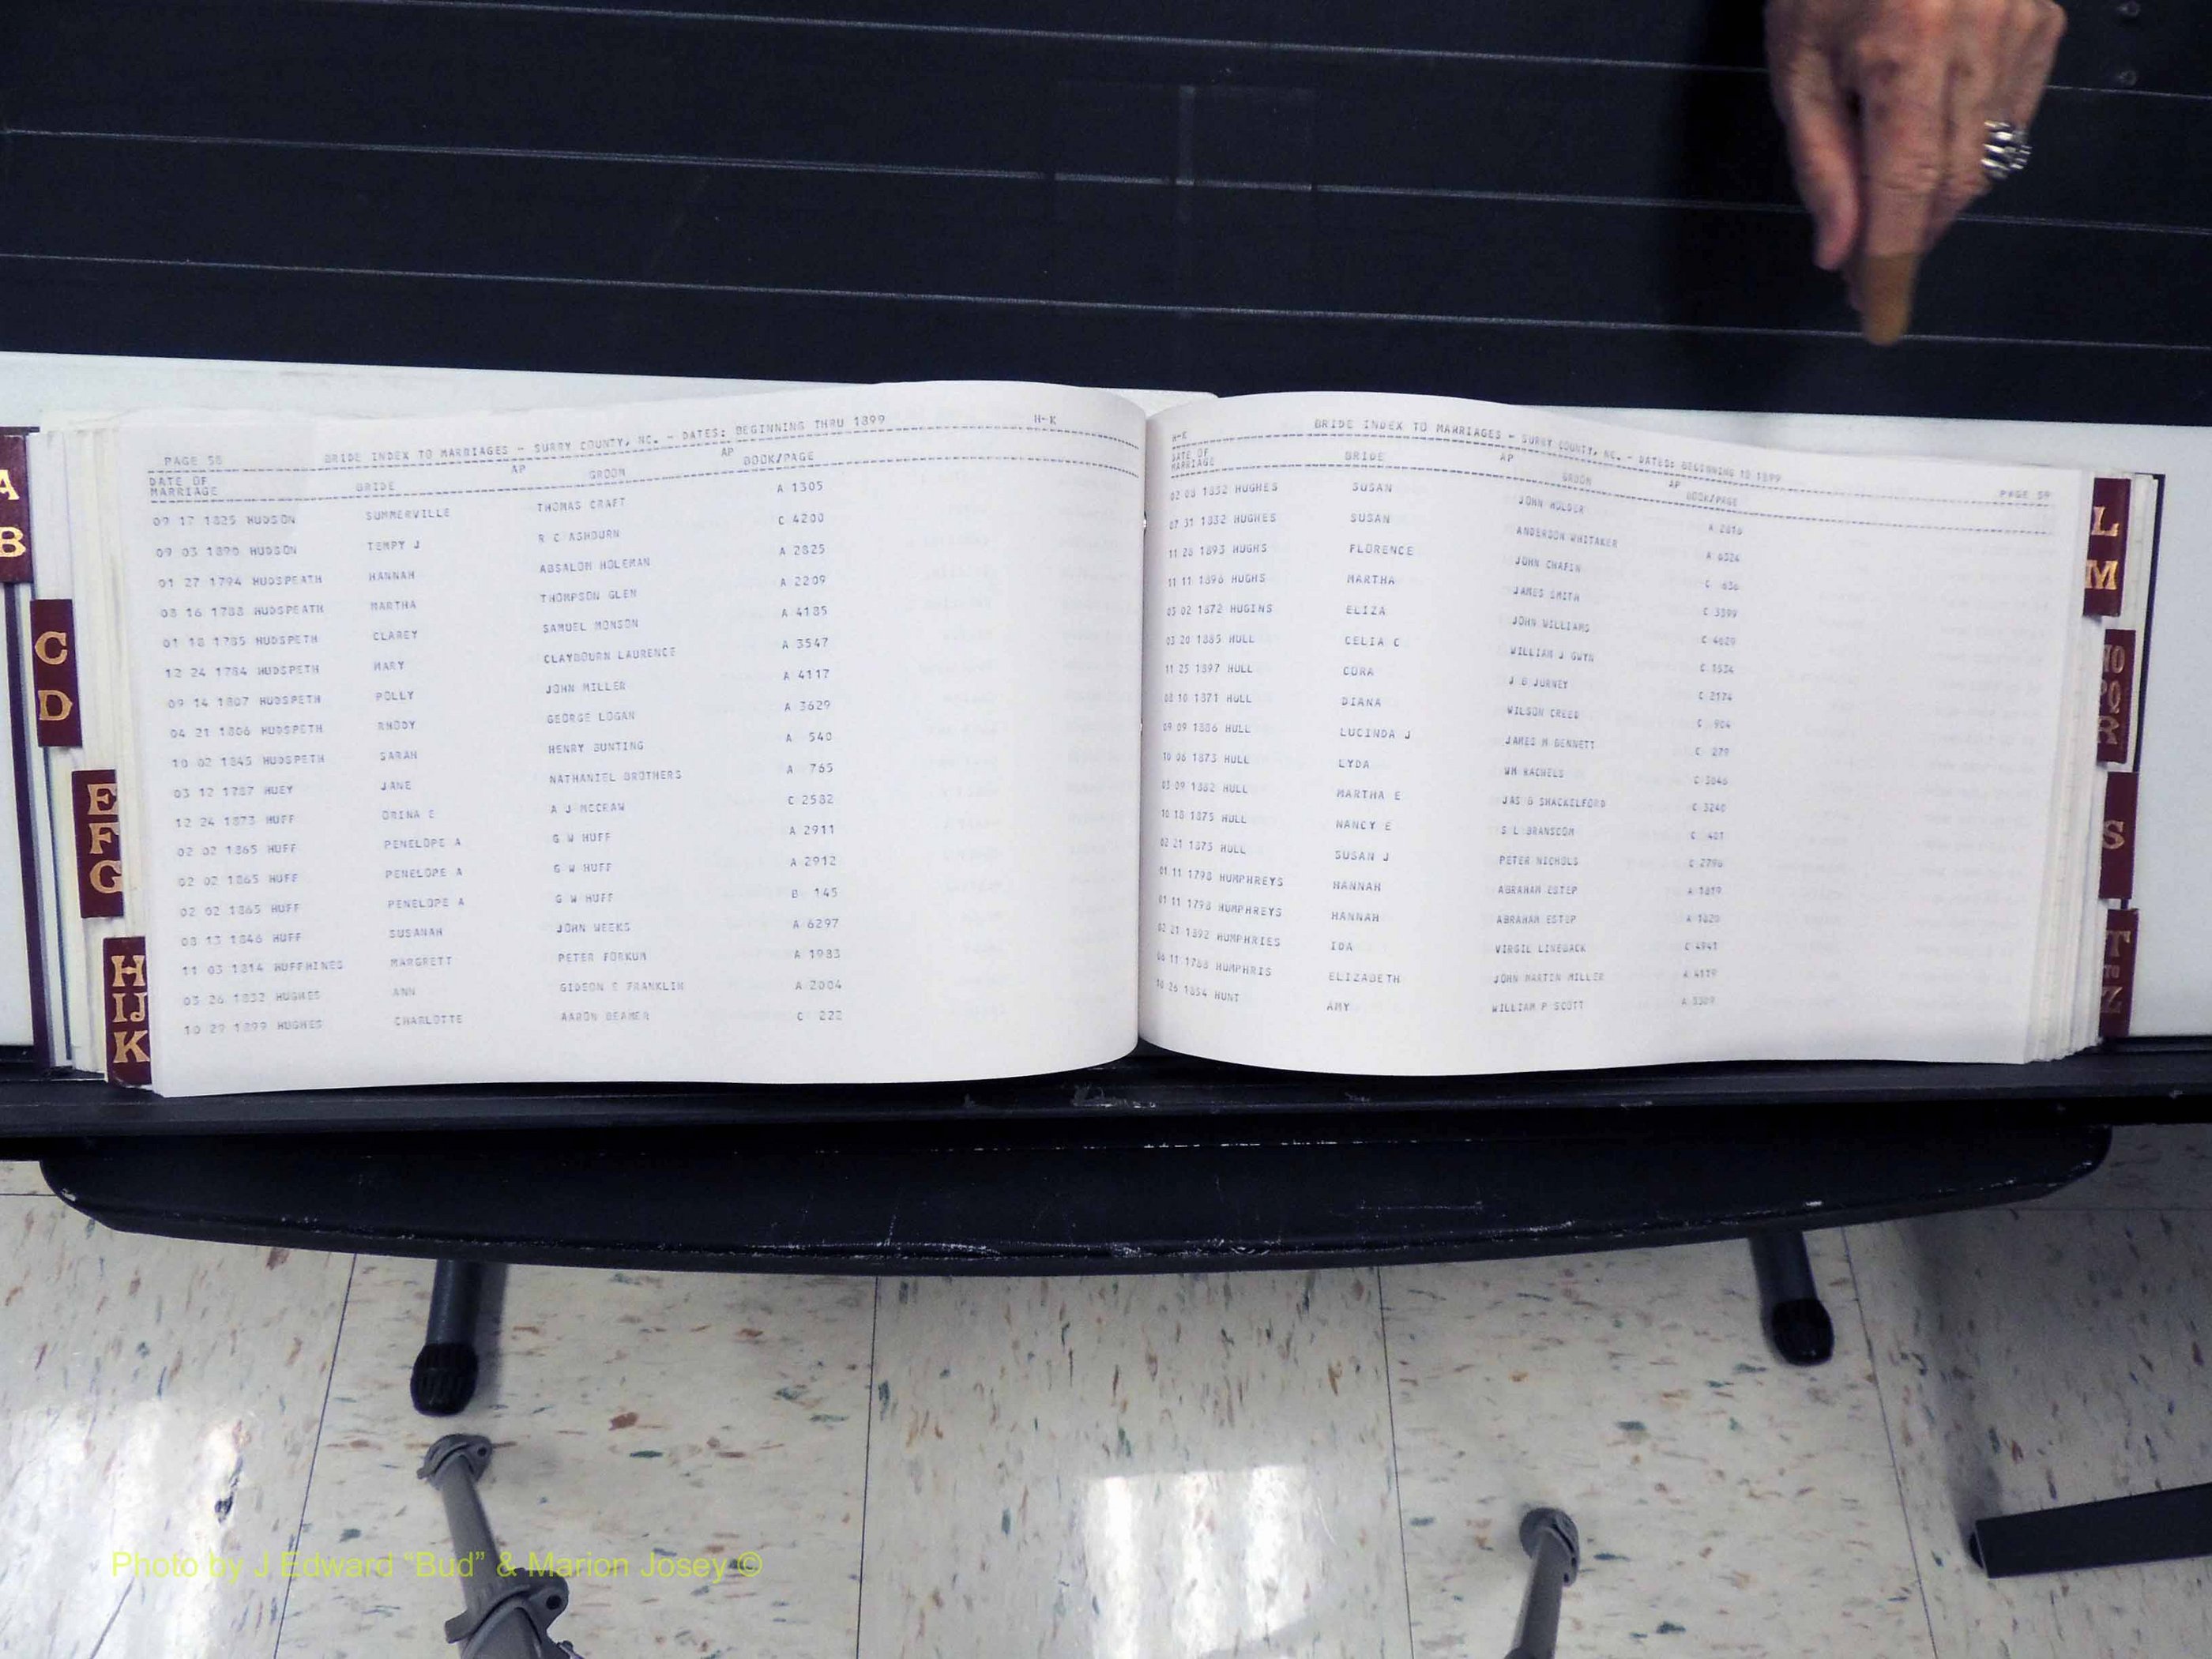 A
B
C
D
E
F
G
H
IJ
K
PAGE 58 BRIDE INDEX TO MARRIAGES - SURRY COUNTY, NC. - DATES: BEGINNING THRU 1899 H-K
DATE OF MARRIAGE BRIDE AP GROOM AP BOOK/PAGE
09 17 1825 HUDSON SUMMERVILLE THOMAS CRAFT A 1305
09 03 1890 HUDSON TEMPY J R C ASHBURN C 4200
01 27 1794 HUDSPEATH HANNAH ABSALOM HOLEMAN A 2825
08 16 1788 HUDSPEATH MARTHA THOMPSON GLEN A 2209
01 18 1785 HUDSPETH CLAREY SAMUEL MONSON A 4185
12 24 1784 HUDSPETH MARY CLAYBOURN LAURENCE A 3547
09 14 1807 HUDSPETH POLLY JOHN MILLER A 4117
04 21 1806 HUDSPETH RHODY GEORGE LOGAN A 3629
10 02 1845 HUDSPETH SARAH HENRY BUNTING A 540
03 12 1787 HUEY JANE NATHANIEL BROTHERS A 765
12 24 1873 HUFF ORINA E A J MCCRAW C 2582
02 02 1865 HUFF PENELOPE A G W HUFF A 2911
02 02 1865 HUFF PENELOPE A G W HUFF A 2912
02 02 1865 HUFF PENELOPE A G W HUFF B 145
08 13 1846 HUFF SUSANAH JOHN WEEKS A 6297
11 03 1814 HUFFHINES MARGRETT PETER FORKUM A 1983
03 26 1832 HUGHES ANN GIDEON E FRANKLIN A 2004
10 29 1899 HUGHES CHARLOTTE AARON BEAMER C 222
H-K BRIDE INDEX TO MARRIAGES - SURRY COUNTY, NC. - DATES: BEGINNING TO 1899 PAGE 59
DATE OF MARRIAGE BRIDE AP GROOM AP BOOK/PAGE
02 08 1832 HUGHES SUSAN JOHN HOLDER A 2816
07 31 1832 HUGHES SUSAN ANDERSON WHITAKER A 6324
11 28 1893 HUGHS FLORENCE JOHN CHAFIN C 636
11 11 1896 HUGHS MARTHA JAMES SMITH C 3399
03 02 1872 HUGINS ELIZA JOHN WILLIAMS C 4029
03 20 1885 HULL CELIA C WILLIAM J GWYN C 1534
11 25 1897 HULL CORA J G JURNEY C 2174
08 10 1871 HULL DIANA WILSON CREED C 904
09 09 1886 HULL LUCINDA J JAMES M BENNETT C 279
10 06 1873 HULL LYDA WM RACHELS C 3046
03 09 1882 HULL MARTHA E JAS G SHACKELFORD C 3240
10 18 1875 HULL NANCY E S L BRANSCOM C 401
02 21 1875 HULL SUSAN J PETER NICHOLS C 2796
01 11 1798 HUMPHREYS HANNAH ABRAHAM ESTEP A 1819
01 11 1798 HUMPHREYS HANNAH ABRAHAM ESTEP A 1820
02 21 1892 HUMPHRIES IDA VIRGIL LINEBACK C 4941
06 11 1788 HUMPHRIS ELIZABETH JOHN MARTIN MILLER A 4119
10 26 1854 HUNT AMY WILLIAM P SCOTT A 5309
L
M
NO
PQ
R
S
T
TO
Z
Photo by J Edward “Bud” & Marion Josey ©